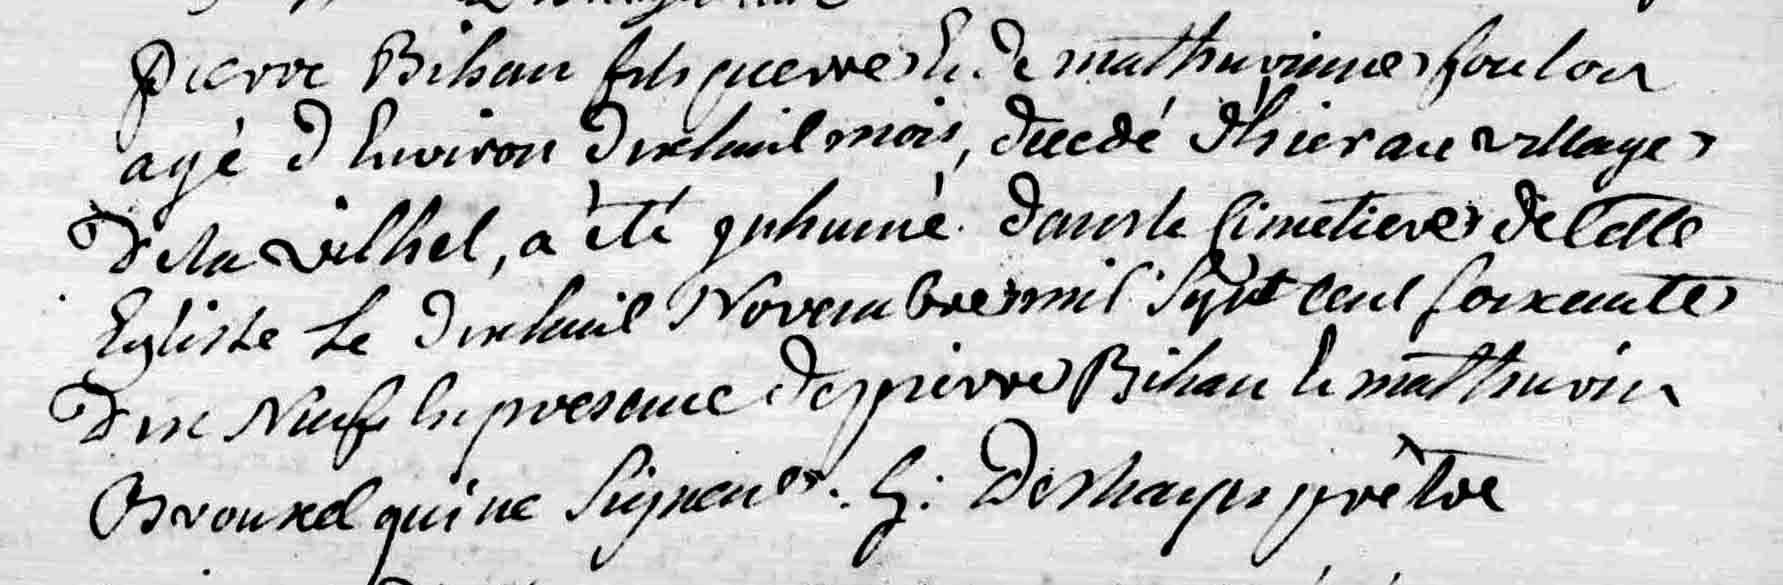 pierre Bihan fils pierre et de mathurinne foulon
agé d'Environ dixhuit mois, décdé d'hier au village
de la villhel, a été ynhumé dans le Cimetiere de Cette
Eglisse Le dixhuit Novembre mil Sept cent soixante
Dix Neuf En presence de pierre Bihan Et mathurin
Brouxel qui ne Signent. G: Deshayes prêtre